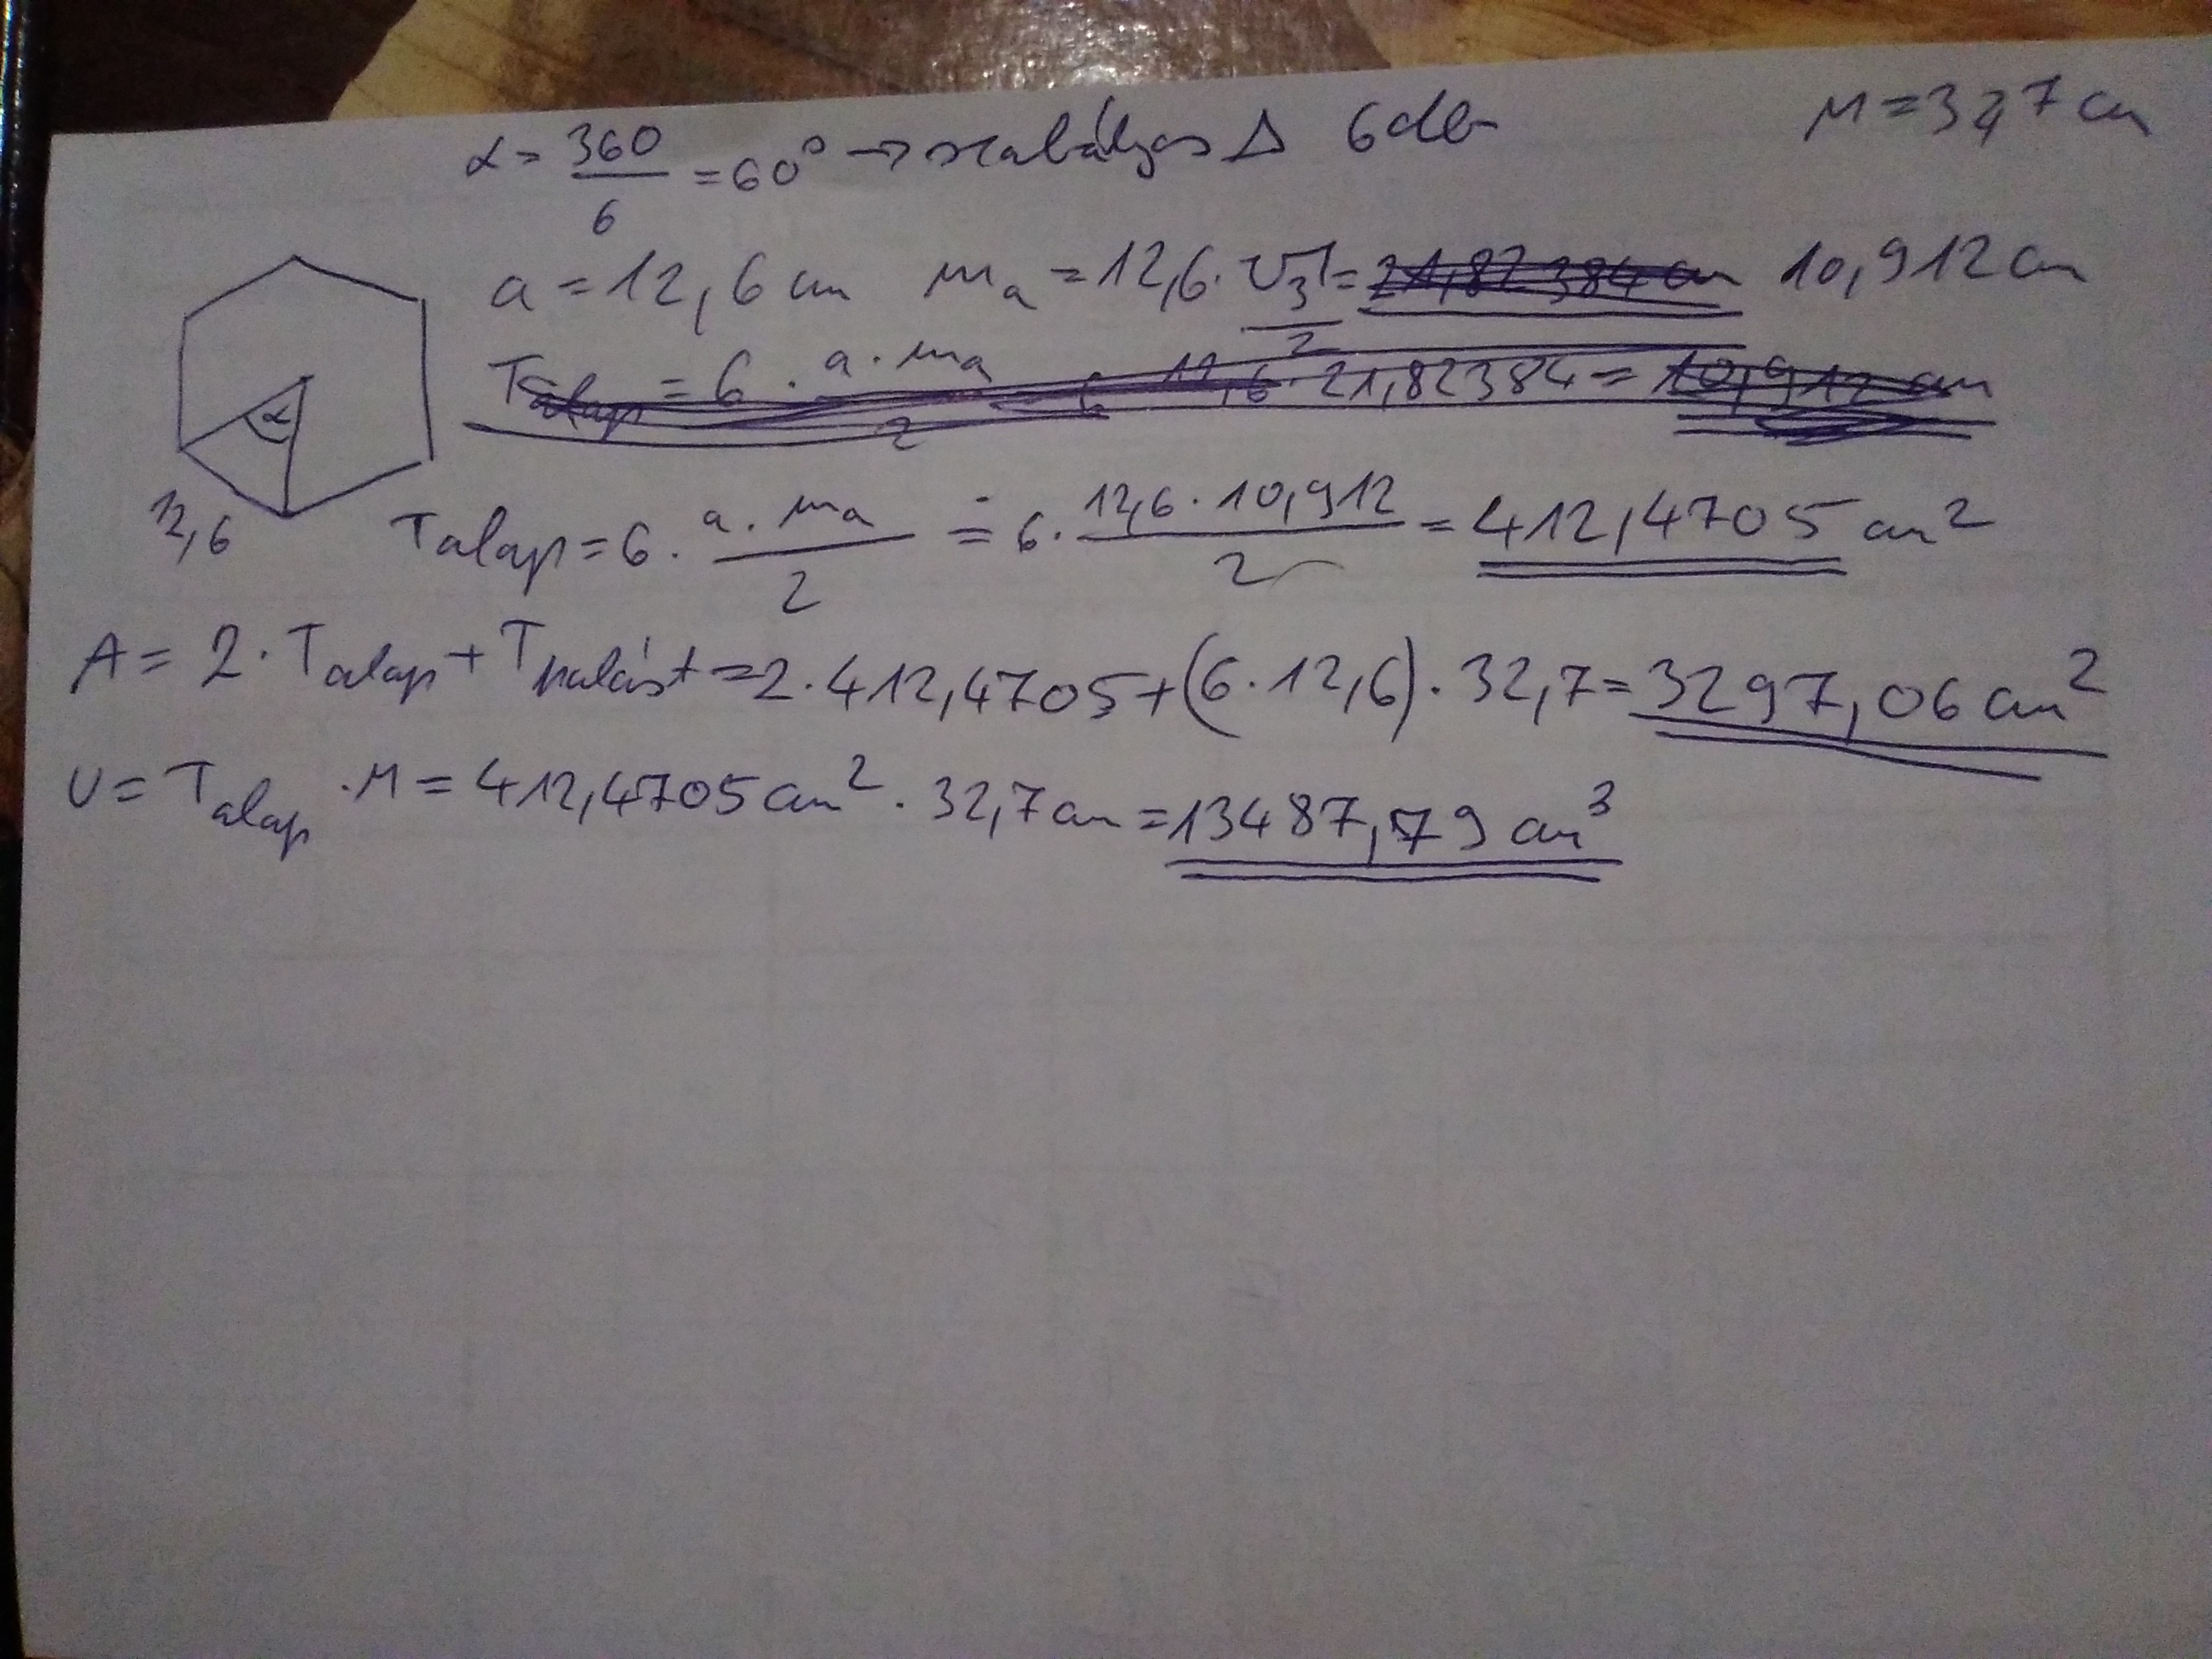 α = 360/6 = 60° → szabályos Δ 6db M = 32,7 cm
a = 12,6 cm mₐ = 12,6 · √3/2 = 21,82384 cm 10,912 cm
Talap = 6 · a · mₐ/2 = 6 · 12,6 · 21,82384 = 10,912 cm
α
12,6
Talap = 6 · a · mₐ/2 = 6 · 12,6 · 10,912/2 = 412,4705 cm²
A = 2 · Talap + Tpalást = 2 · 412,4705 + (6 · 12,6) · 32,7 = 3297,06 cm²
V = Talap · M = 412,4705 cm² · 32,7 cm = 13487,79 cm³